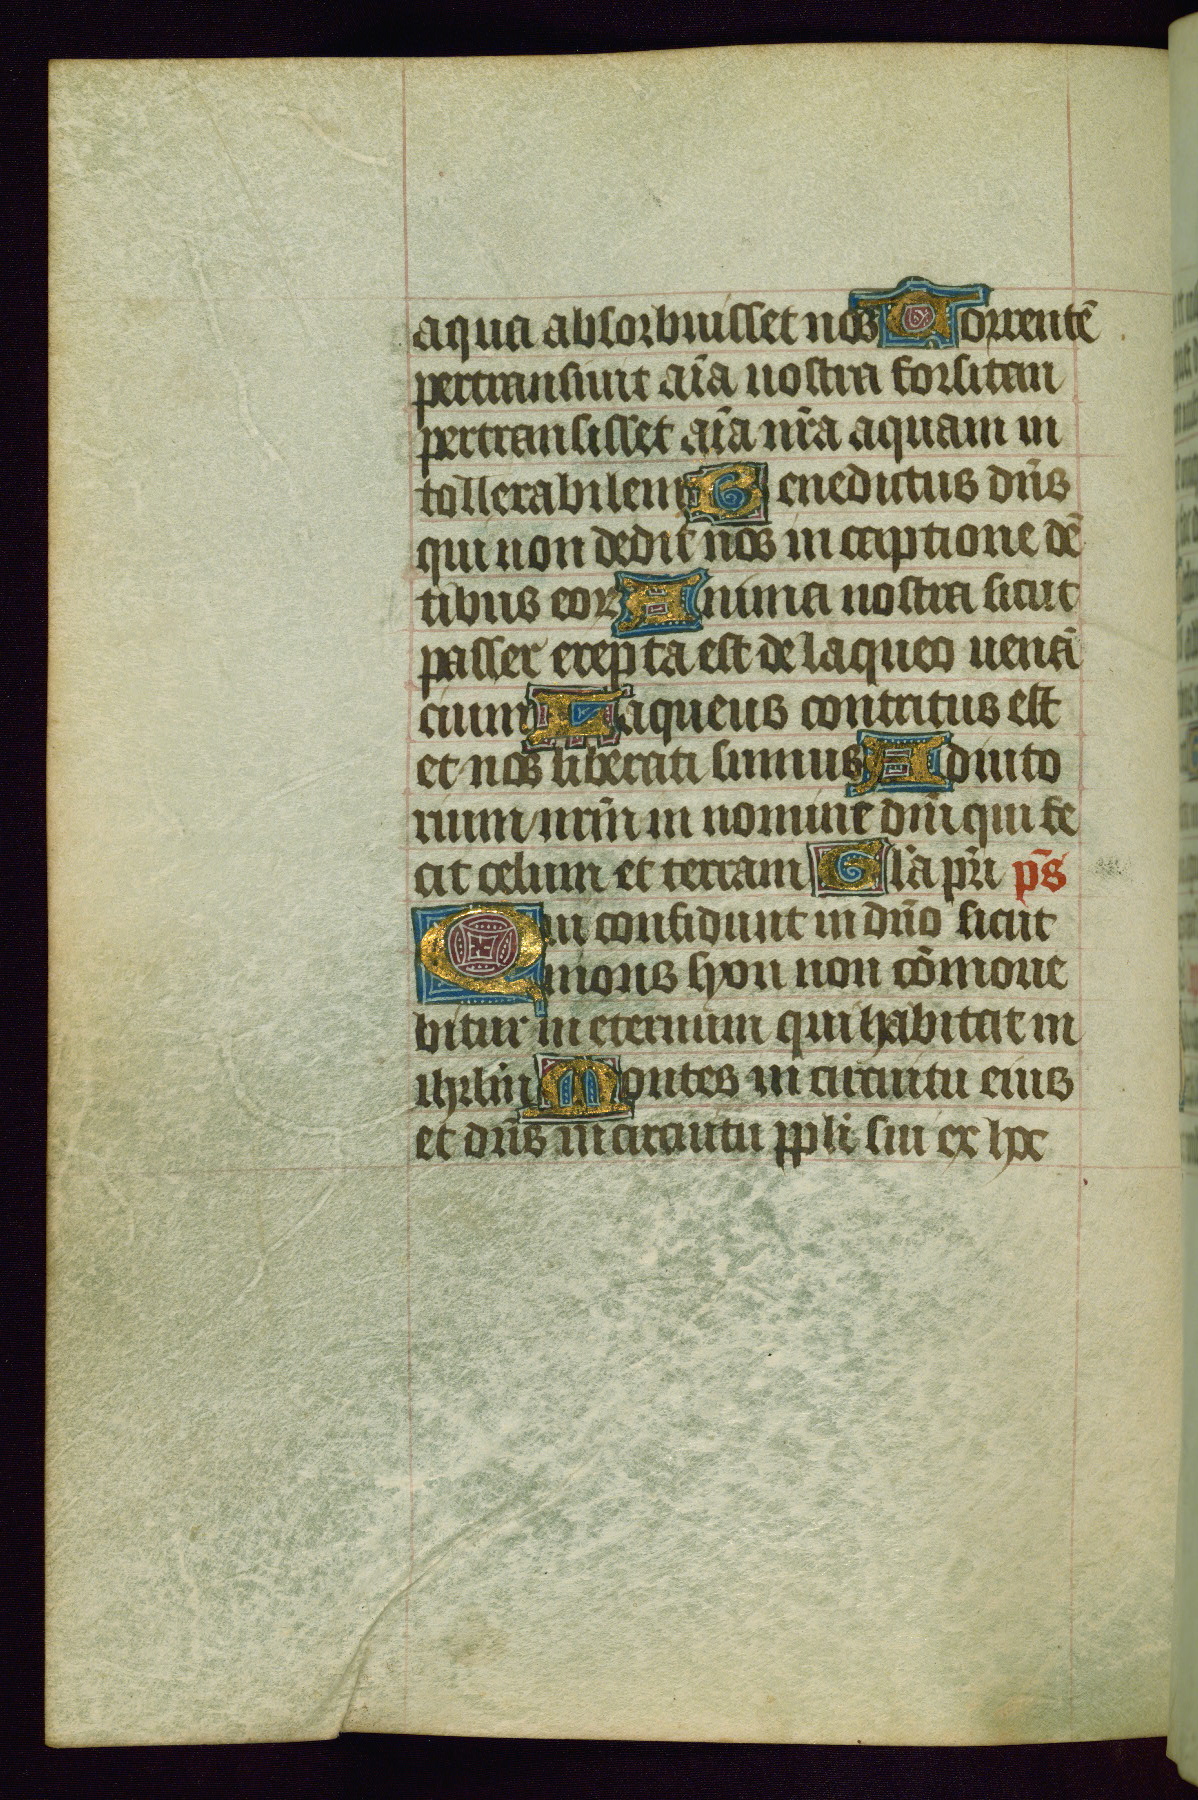 aqua absorbuisset nos Torrentē
pertransiuit aīa nostra forsitan
pertransisset aīa nr̄a aquam in
tollerabilem Benedictus dn̄s
qui non dedit nos in captione dē
tibus eor Anima nostra sicut
passer erepta est de laqueo uenā
cium Laqueus contritus est
et nos liberati sumus Adiuto
rium nrm̄ in nomine dn̄i qui fe
cit celum et terram Gl̄a pr̄i p̄s
Qui confidunt in dn̄o sicut
mons syon non cōmoue
bitur in eternum qui habitat in
ihrlm̄ Montes in circuitu eius
et dn̄s in circuitu ppl̄i sui ex hoc